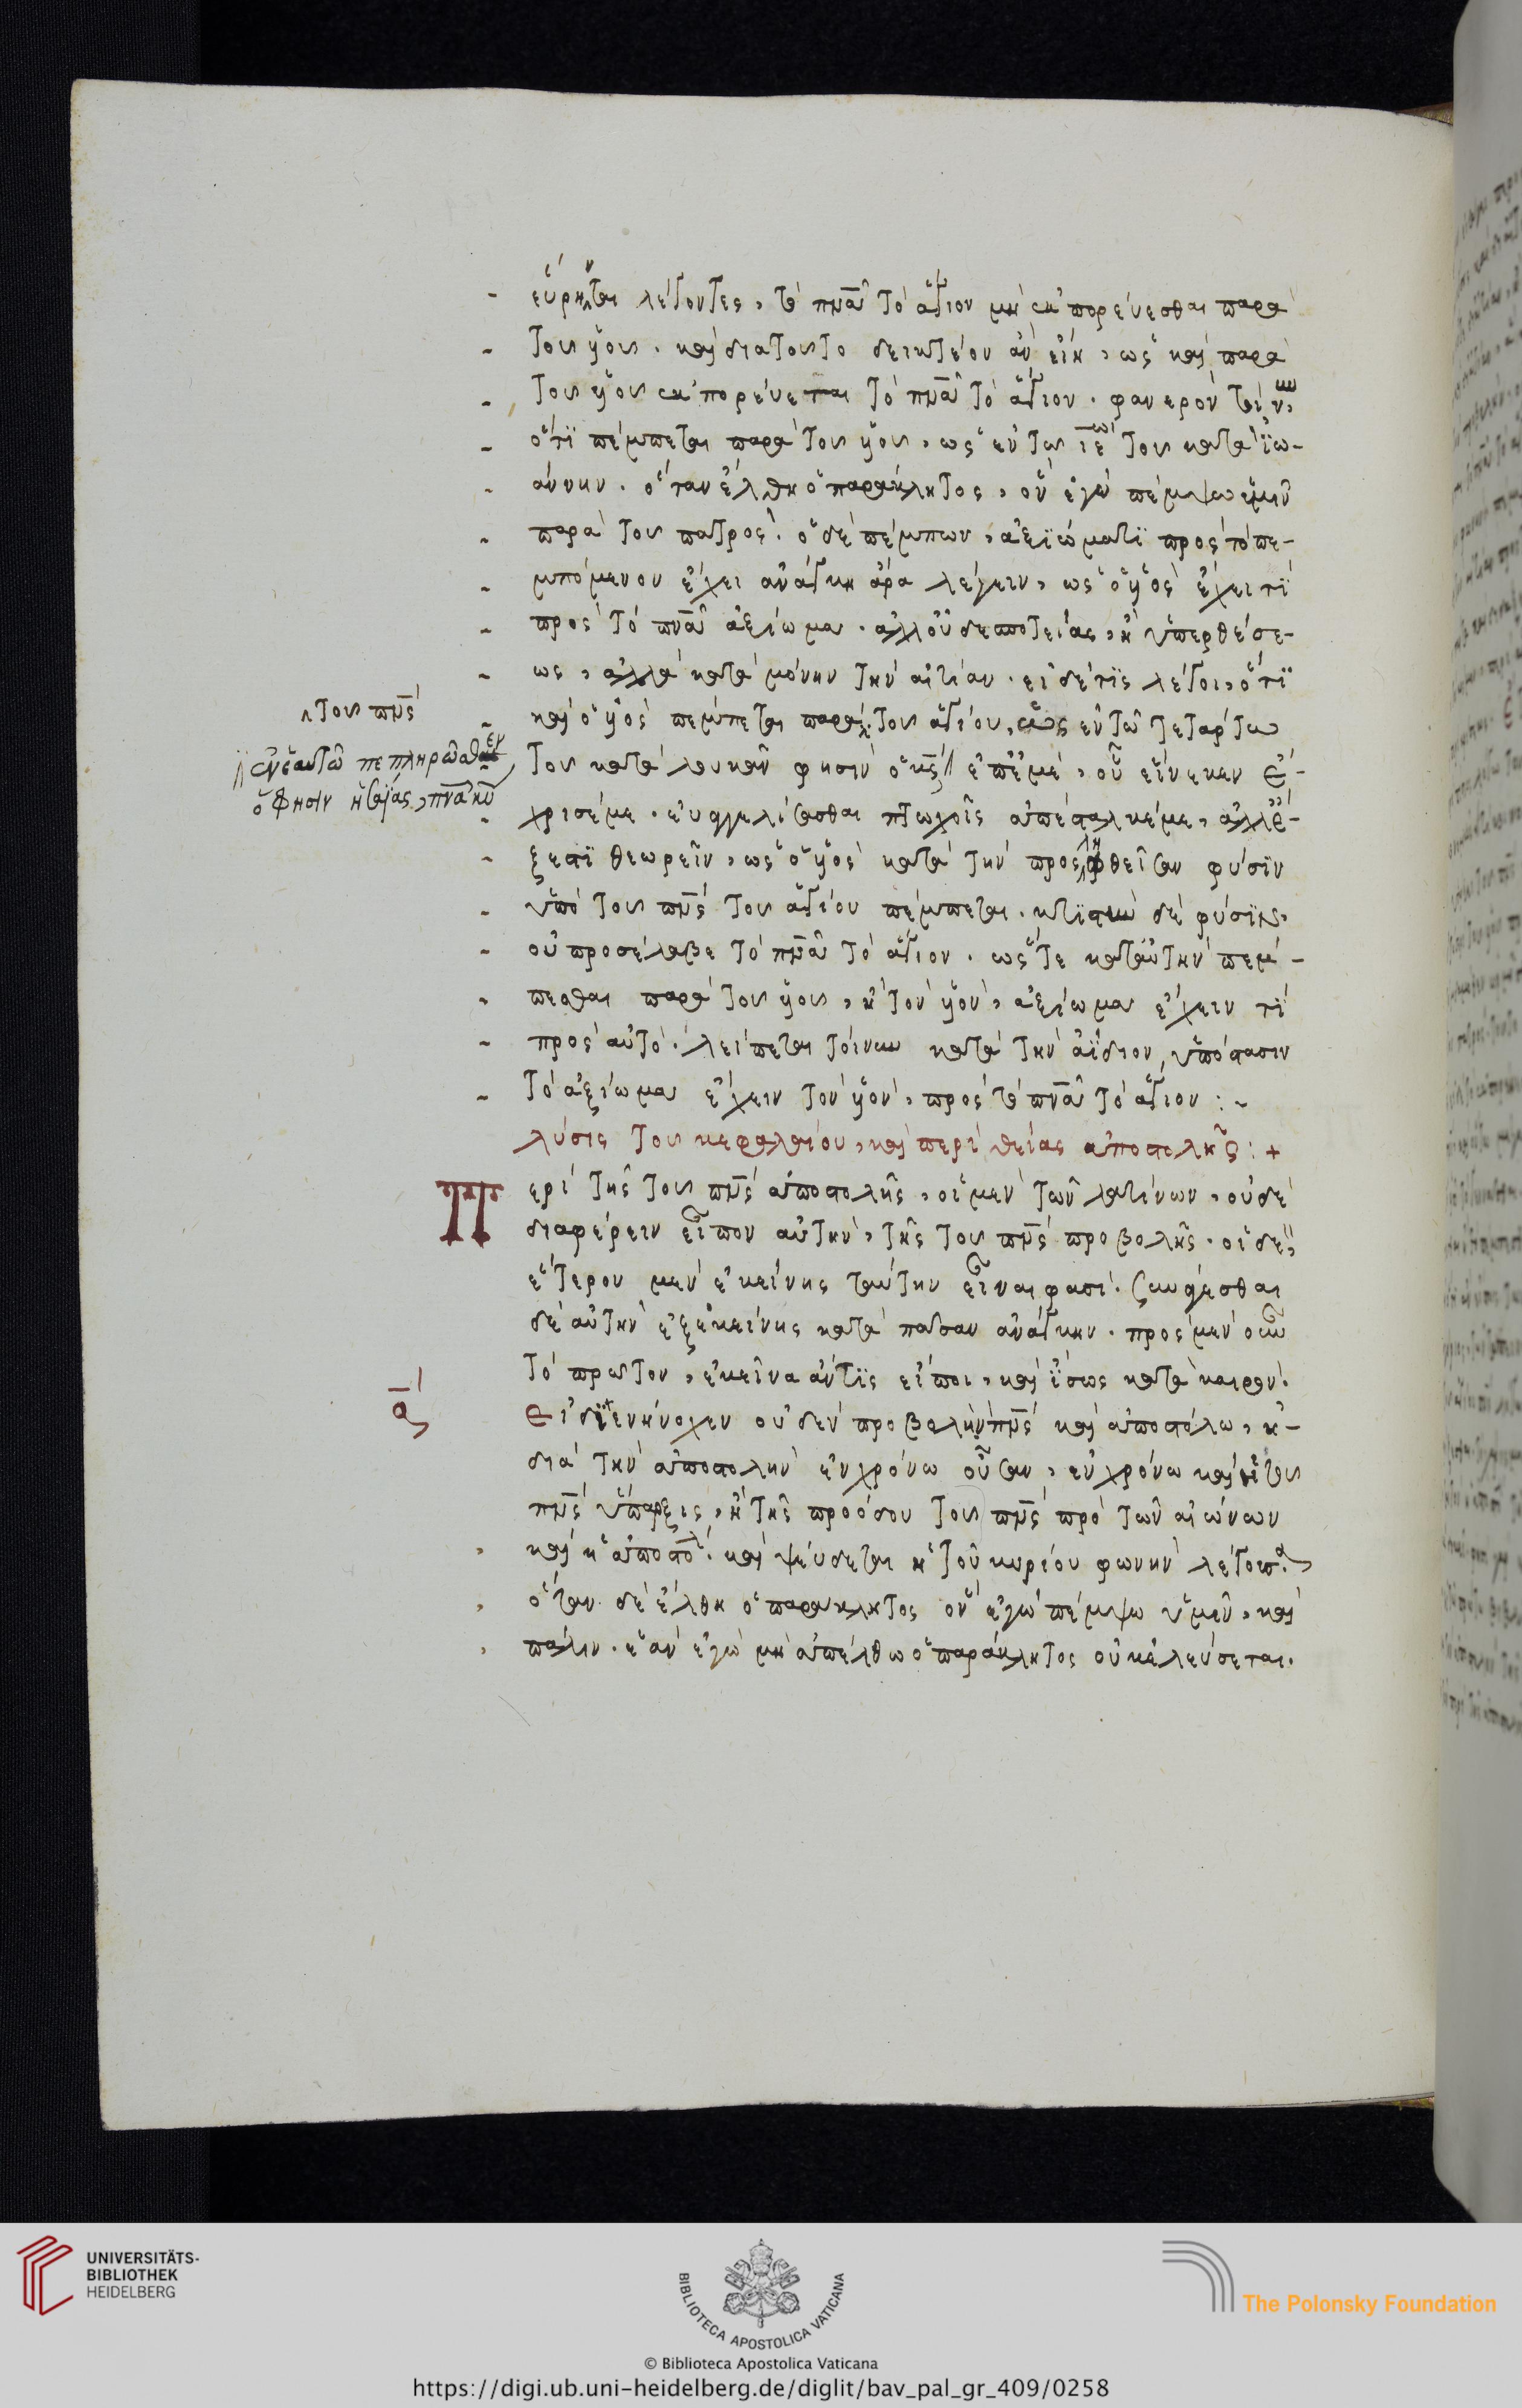 εὕρηνται λέγοντες, τὸ πνᾶ τὸ ἅγιον μὴ ἐκπορεύεσθαι παρὰ
τοῦ υἱοῦ. καὶ διατοῦτο δεικτέον ἂν εἴη, ὡς καὶ παρὰ
τοῦ υἱοῦ ἐκπορέυεται τὸ πνᾶ τὸ ἅγιον. φανερὸν
ὅτι πέμπεται παρὰ τοῦ υἱοῦ, ὡς ἐν τῶ ιε τοῦ κατὰ ἰω-
άννην. ὅταν ἔλθη ὁ παράκλητος, ὃν ἐγὼ πέμψω ὑμῖν
παρὰ τοῦ πατρός. ὁ δὲ πέμπων, ἀξιώματι πρὸς τὸ πε-
μπόμενον ἔχει ἀνάγκη ἄρα λέγειν, ὡς ὁ υἱὸς ἔχει τι
πρὸς τὸ πνᾶ ἀξίωμα. ἀλλοὐ δεσποτείας, ἢ ὑπερθέσε-
ως, ἀλλὰ κατὰ μόνην τὴν αἰτίαν. εἰ δέ τις λέγοι, ὅτι
τοῦ πνς
καὶ ὁ υἱὸς πέμπεται παρὰ τοῦ ἁγίου, ὡς ἐν τῶ τετάρτω
ἐν ἑαυτῶ πεπληρῶσθαι
ὅ φησιν ἡσαΐας, πνᾶ κυ
τοῦ κατὰ λουκᾶν φησὶν ὁ κς ἐπ' ἐμὲ, οὗ εἵνεκεν ἔ-
χρισέ με. ἐυαγγελίζεσθαι πτωχοῖς ἀπέσταλκέ με, ἀλλ' ἔ-
ξεστι θεωρεῖν, ὡς ὁ υἱὸς κατὰ τὴν προσληφθεῖσαν φύσιν
ὑπὸ τοῦ πνς τοῦ ἁγίου πέμπεται. κτιστὴν δὲ φύσιν,
οὐ προσέλαβε τὸ πνᾶ τὸ ἅγιον. ὥστε κατ' αὐτὴν πέμ-
πεσθαι παρὰ τοῦ υἱοῦ, ἢ τὸν υἱὸν, ἀξίωμα ἔχειν τι
πρὸς αὐτό. λείπεται τοίνυν κατὰ τὴν ἀΐδιον ὑπόστασιν
τὸ ἀξίωμα ἔχειν τὸν υἱὸν, πρὸς τὸ πνᾶ τὸ ἅγιον :~
λύσις τοῦ κεφαλαίου, καὶ περὶ θείας ἀποστολῆς : +
Περὶ τῆς τοῦ πνς ἀποστολῆς, οἱ μὲν τῶν λατίνων, οὐδὲ
διαφέρειν εἶπον αὐτὴν, τῆς τοῦ πνς προβολῆς. οἱ δὲ,
ἕτερον μὲν ἐκείνης ταύτην εἶναι φασί. συνάγεσθαι
δὲ αὐτὴν ἐξ ἐκείνης κατὰ πᾶσαν ἀνάγκην. πρὸς μὲν οὖν
τὸ πρῶτον, ἐκεῖνα ἄν τις εἴποι, καὶ ἴσως κατὰ καιρόν.
α
Ει διενήνοχεν οὐδὲν προβολὴ πνς καὶ ἀποστολὴ, ἢ
διὰ τὴν ἀποστολὴν ἐν χρόνω οὖσαν, ἐν χρόνω καὶ ἡ τοῦ
πνς ὕπαρξις, ἢ τῆς προόδου τοῦ πνς πρὸ τῶν αἰώνων
καὶ ἡ ἀποστολ. καὶ ψεύδεται ἡ τοῦ κυρίου φωνὴ λέγουσα
ὅταν δὲ ἔλθη ὁ παράκλητος ὃν ἐγὼ πέμψω ὑμῖν, καὶ
πάλιν. ἐὰν ἐγὼ μὴ ἀπέλθω ὁ παράκλητος οὐκ ἐλεύσεται.
UNIVERSITÄTS-
BIBLIOTHEK
HEIDELBERG
BIBLIOTECA APOSTOLICA VATICANA
The Polonsky Foundation
© Biblioteca Apostolica Vaticana
https://digi.ub.uni-heidelberg.de/diglit/bav_pal_gr_409/0258